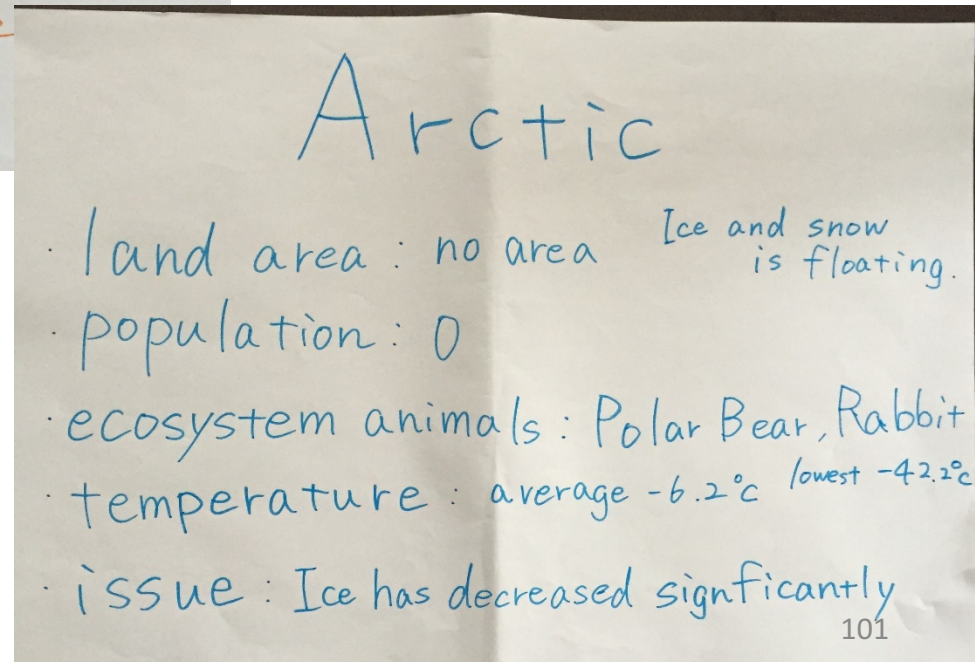 Arctic
· land area : no area Ice and snow
is floating.
· population : 0
· ecosystem animals : Polar Bear, Rabbit
· temperature : average -6.2°c lowest -42.2°c
· issue : Ice has decreased signficantly
101